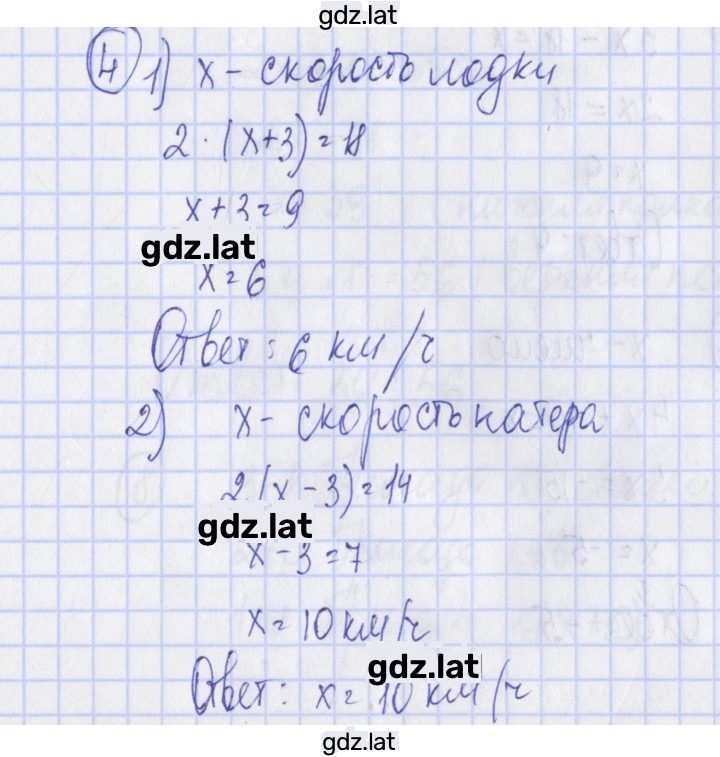 gdz.lat
4 1) x - скорость лодки
2 · (x+3) = 18
x + 3 = 9
gdz.lat
x = 6
Ответ: 6 км/ч
2) x - скорость катера
2(x - 3) = 14
gdz.lat
x - 3 = 7
x = 10 км/ч
gdz.lat
Ответ: x = 10 км/ч
gdz.lat